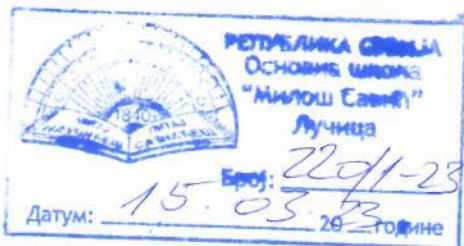 РЕПУБЛИКА СРБИЈА
Основна школа
"Милош Савић"
Лучица
1840
Број: 220/1-23
Датум: 15. 03. 20 23 године